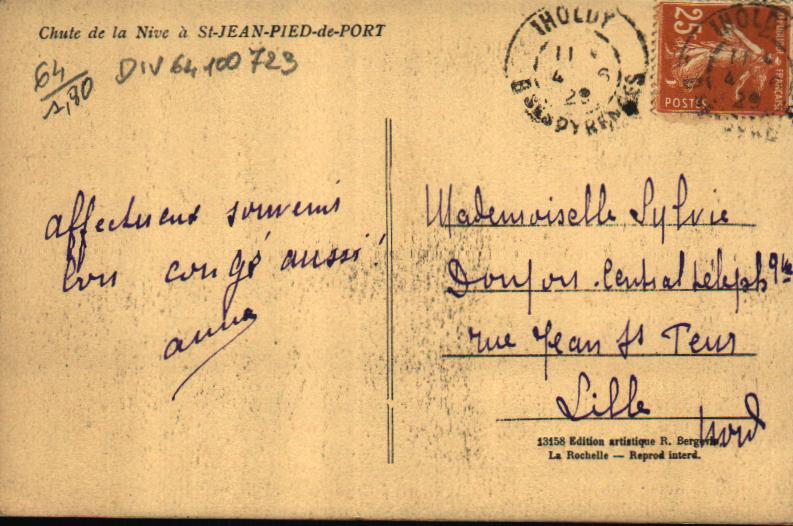 Chute de la Nive à St-JEAN-PIED-de-PORT
64
1,80
DIV 64 100 723
IHOLDY
11
4 6
29
BSES PYRENEES
25c
POSTES
affectueux souvenir
bon congé aussi!
anna
Mademoiselle Sylvie
Donfort. Central téléph que
rue Jean St
Lille
Nord
13158 Edition artistique R. Bergevin,
La Rochelle — Reprod interd.